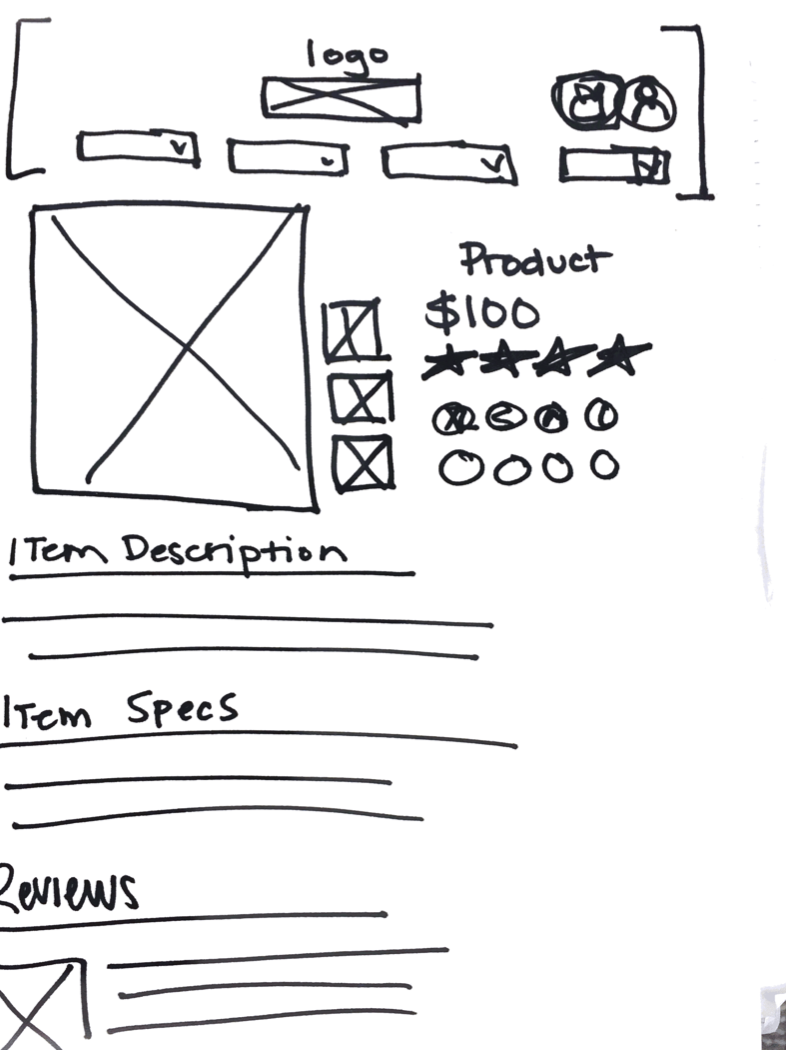 logo
Product
$100
Item Description
Item Specs
Reviews